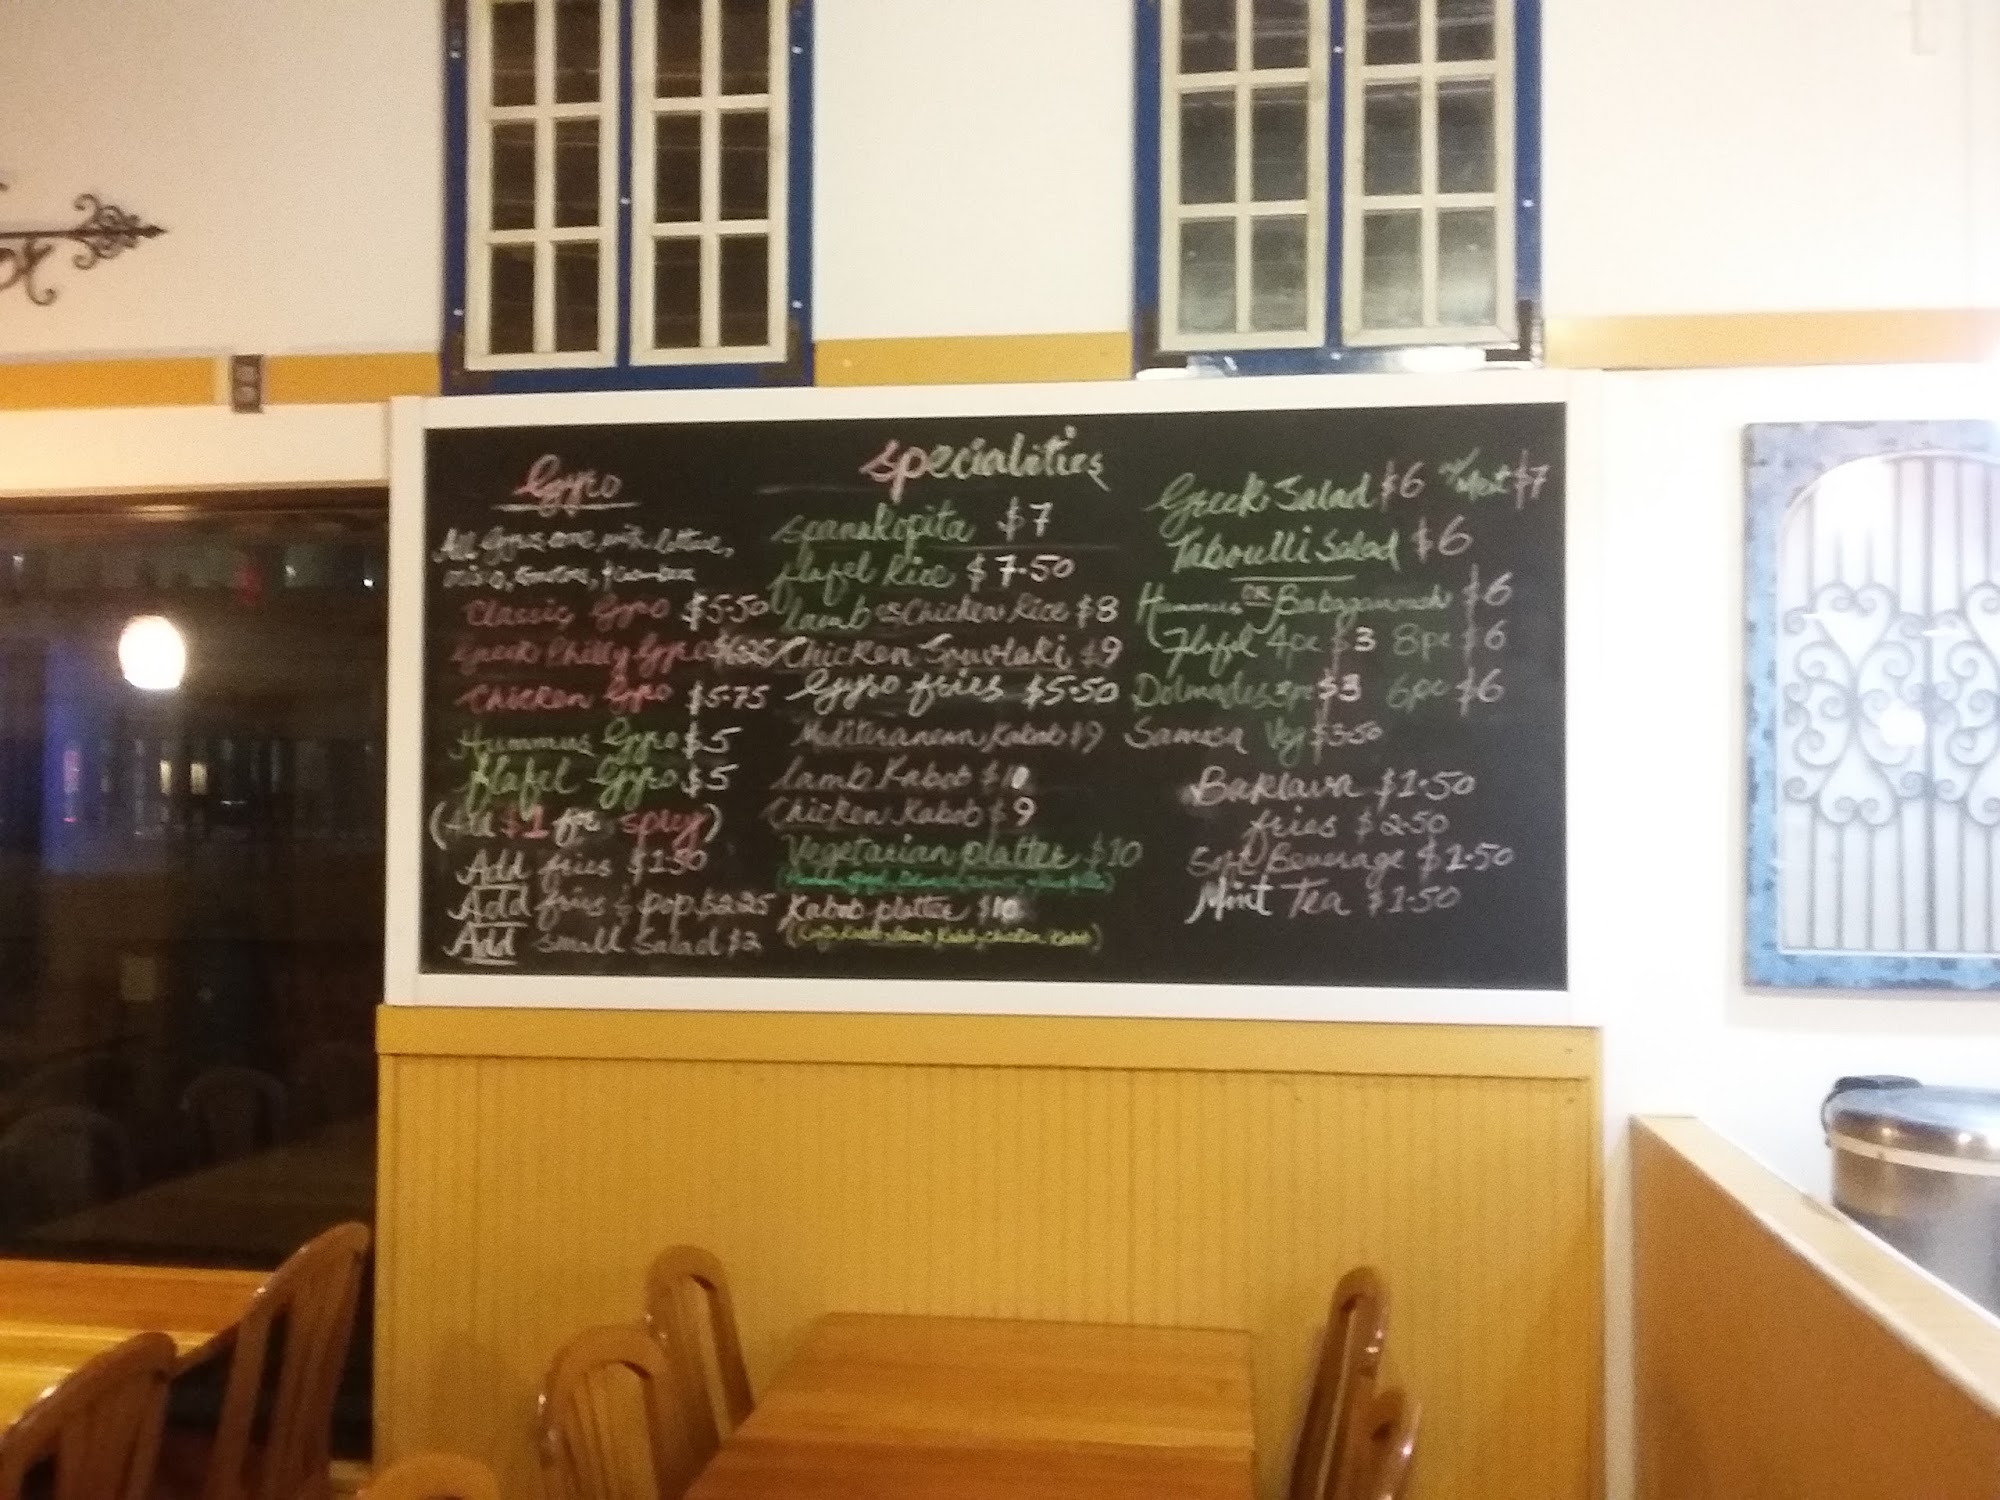 Gyro
All Gyros are with lettuce,
onion, tomatoe, & cucumber
Classic Gyro $5.50
Greek Philly Gyro $6.25
Chicken Gyro $5.75
Hummus Gyro $5
flafel Gyro $5
(Add $1 for spicy)
Add fries $1.50
Add fries & pop $2.25
Add small Salad $2
specialities
spanakopita $7
flafel Rice $7.50
Lamb or Chicken Rice $8
Chicken Souvlaki $9
Gyro fries $5.50
Mediteranean Kabob $9
Lamb Kabob $10
Chicken Kabob $9
Vegetarian platter $10
Kabob platter $10
Kabob, Lamb Kabob, Chicken Kabob)
Greek Salad $6 w/ Meat $7
Taboulli Salad $6
Hummus OR Babaganoush $6
Flafel 4pc $3 8pc $6
Dolmades 3pc $3 6pc $6
Samosa Veg $3.50
Baklava $1.50
fries $2.50
Soft Beverage $1.50
Mint Tea $1.50